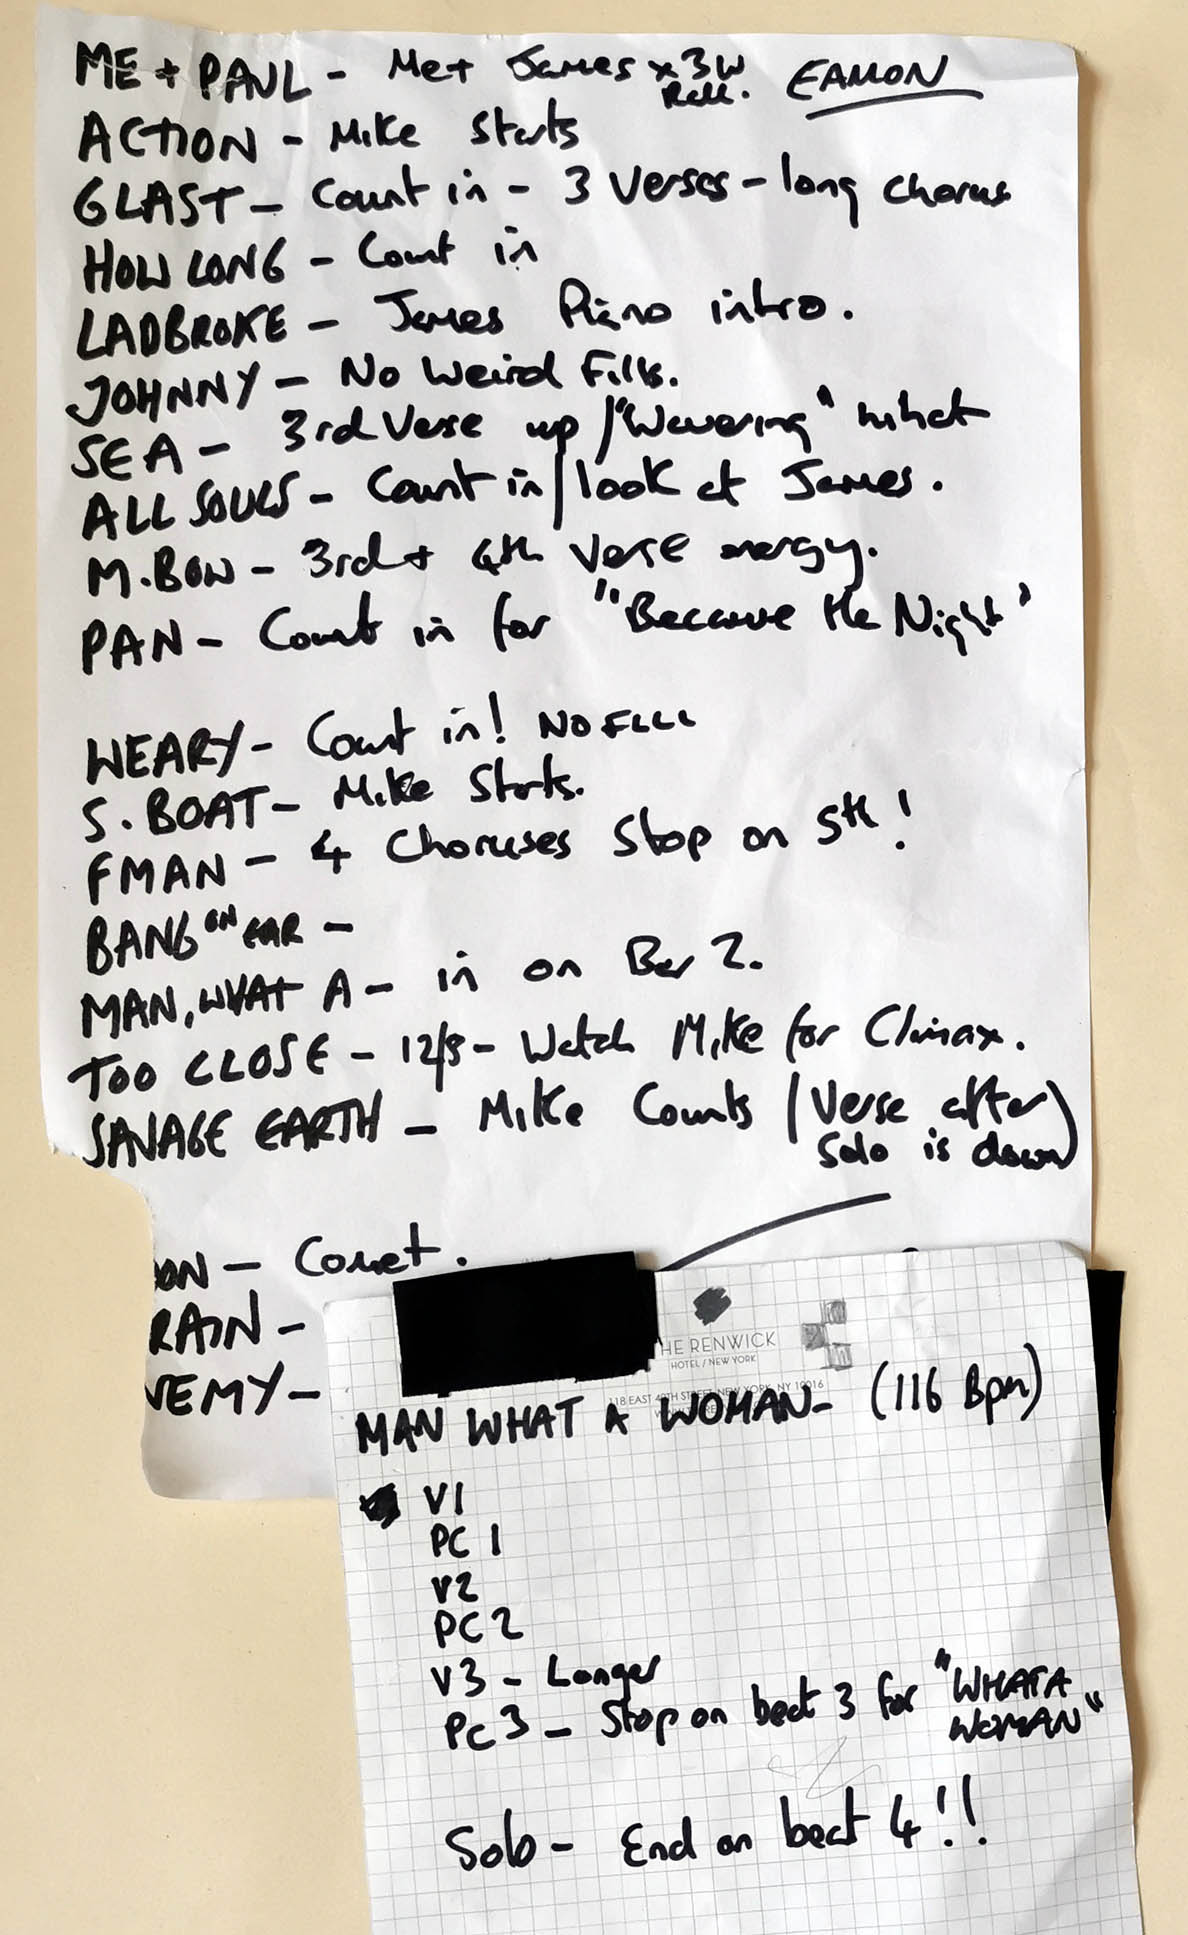 ME + PAUL - Me + James x3W EAMON
Roll.
ACTION - Mike Starts
GLAST - Count in - 3 Verses - long Chorus
HOW LONG - Count in
LADBROKE - James Piano intro.
JOHNNY - No Weird Fills.
SEA - 3rd Verse up / "Wavering" what
ALL SOULS - Count in / look at James.
M.BOW - 3rd + 4th Verse energy.
PAN - Count in for "Because the Night"
WEARY - Count in! NO FILL
S. BOAT - Mike Starts.
FMAN - 4 Choruses Stop on 5th!
BANG ON EAR -
MAN, WHAT A - in on Bar 2.
TOO CLOSE - 12/8 - Watch Mike for Climax.
SAVAGE EARTH - Mike Counts (Verse after
Solo is down)
OON - Comet.
RAIN -
NEMY -
HE RENWICK
HOTEL / NEW YORK
118 EAST 40TH STREET, NEW YORK, NY 10016
MAN WHAT A WOMAN - (116 Bpm)
V1
PC 1
V2
PC 2
V3 - Longer
PC 3 - Stop on beat 3 for "WHAT A
WOMAN"
Solo - End on beat 4!!